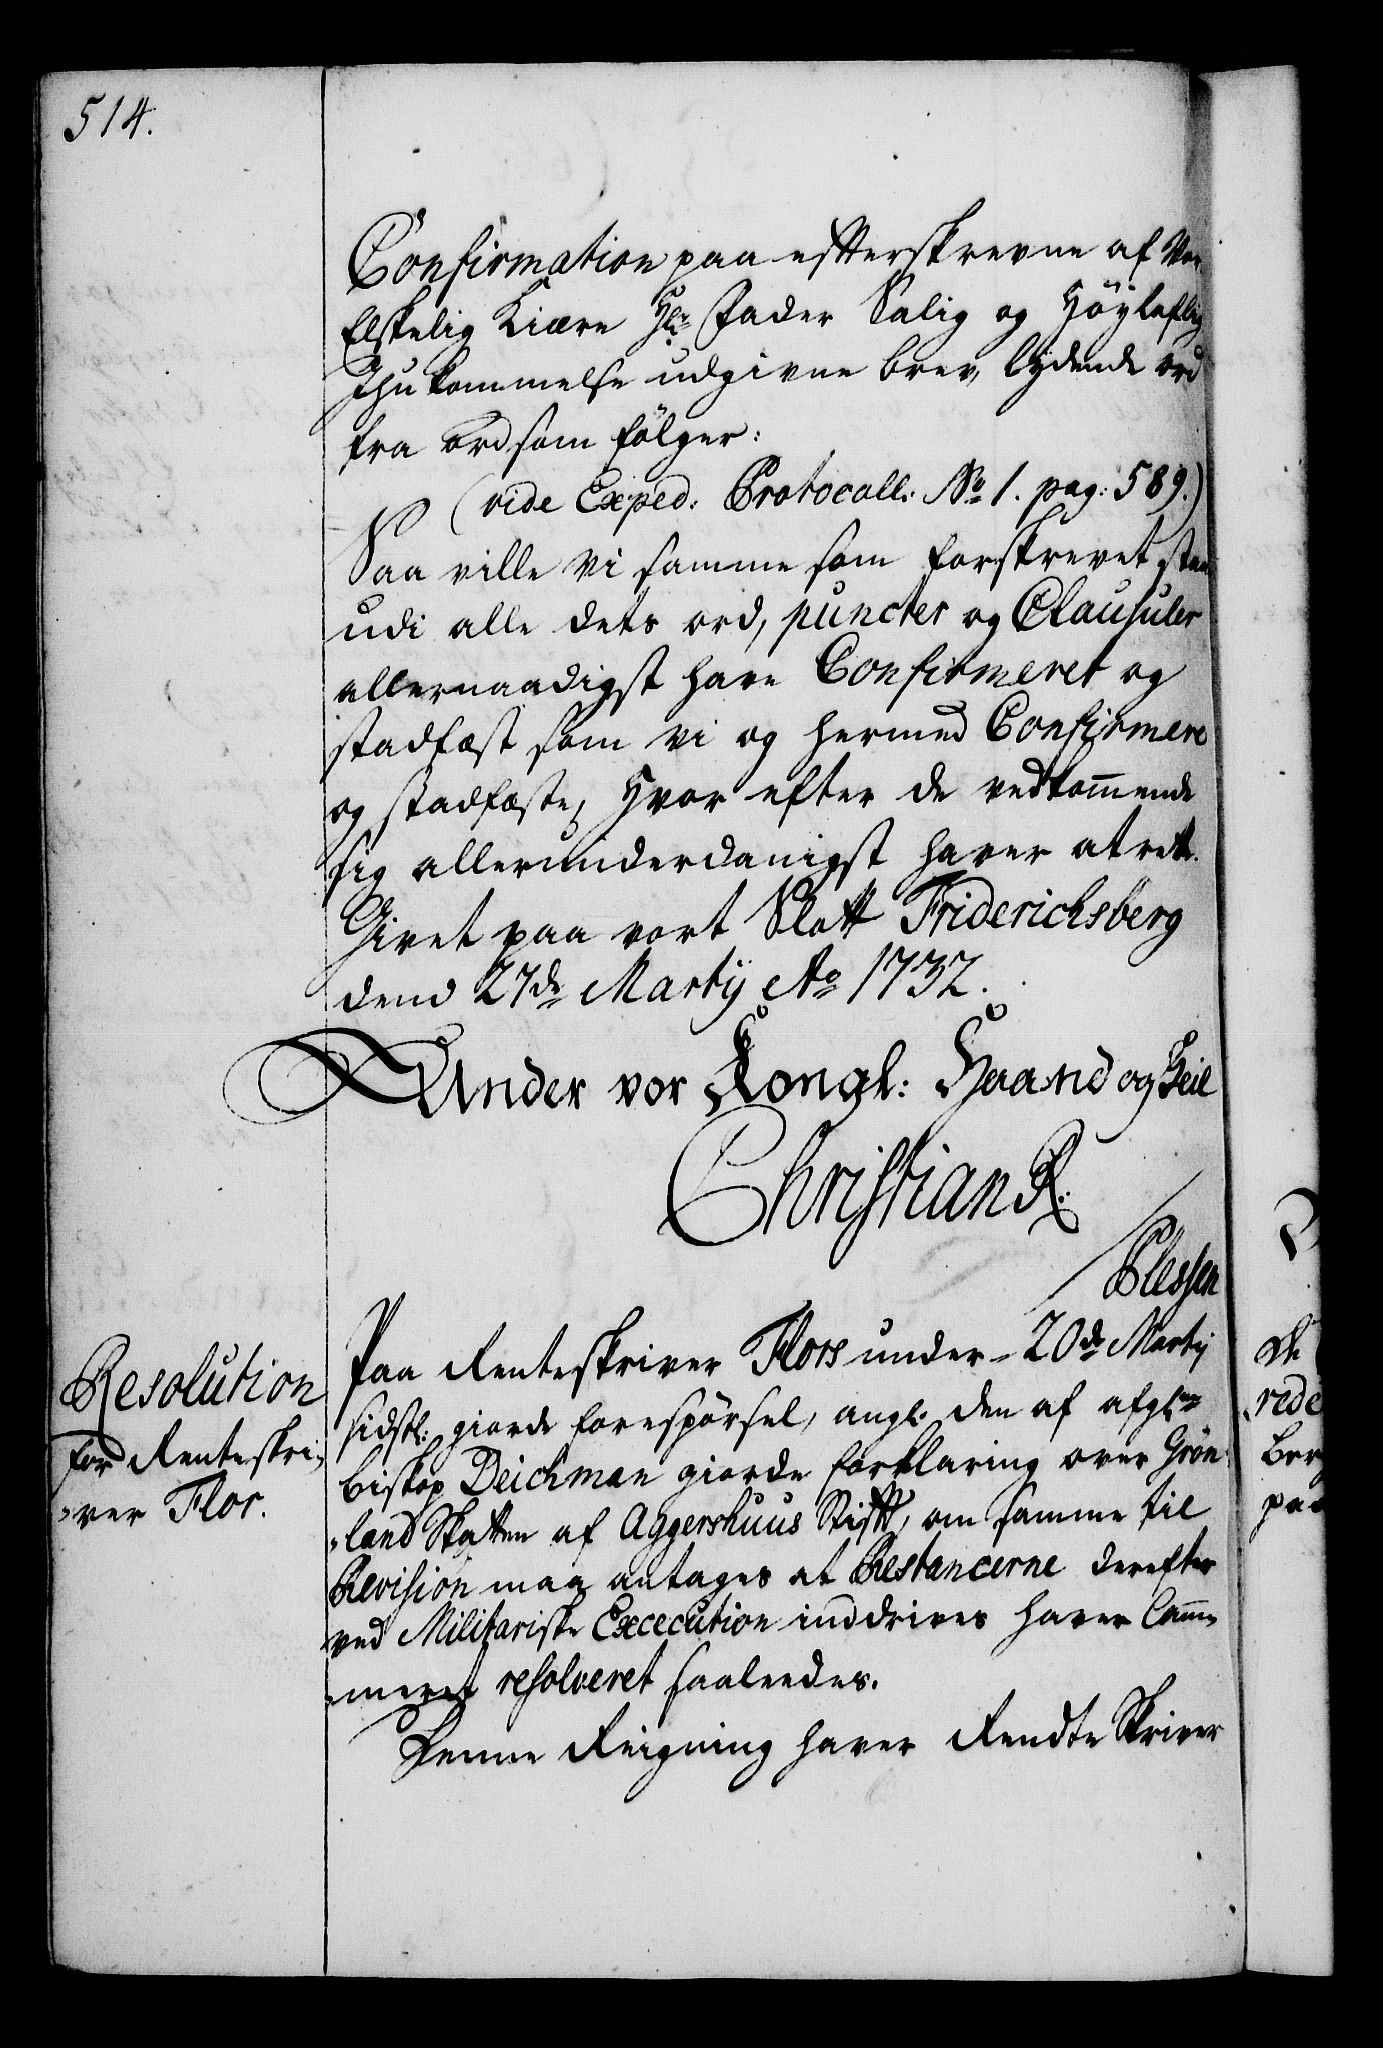 514.
Confirmation paa effterskrevne af Vor
Elskelig Kiære Hr: Fader Salig og Høylaflig
Ihukommelse udgivne brev, lydende ord
fra ord som følger:
(vide Exped: Protocoll: No 1. pag: 589.)
Saa ville vi samme som forskrevet staar
udi alle dets ord, puncter og Clausuler
allernaadigst have Confirmeret og
stadfæst som vi og hermed Confirmere
og stadfæste, Hvor efter de vedkommende
sig allerunderdanigst haver at rette.
Givet paa vort Slott Friderichsberg
dend 27de Martij Ao 1732.
Under vor Kongl: Haand og Seil
Christian R:
/ Plessen
Resolution
for Renteskri-
-ver Flor.
Paa Renteskriver Flors under 20de Martij
sidstl: giorde forespørsel, angl: den af afgl:
biskop Deichman giorde forklaring over Grøn-
-land Skatten af Aggershuus Stift, om samme til
Revision maa antages at Restancerne derefter
ved Militariske Excecution inddrives haver Cam-
-meret resolveret saaleedes.
Denne Reigning haver Rendte Skriver